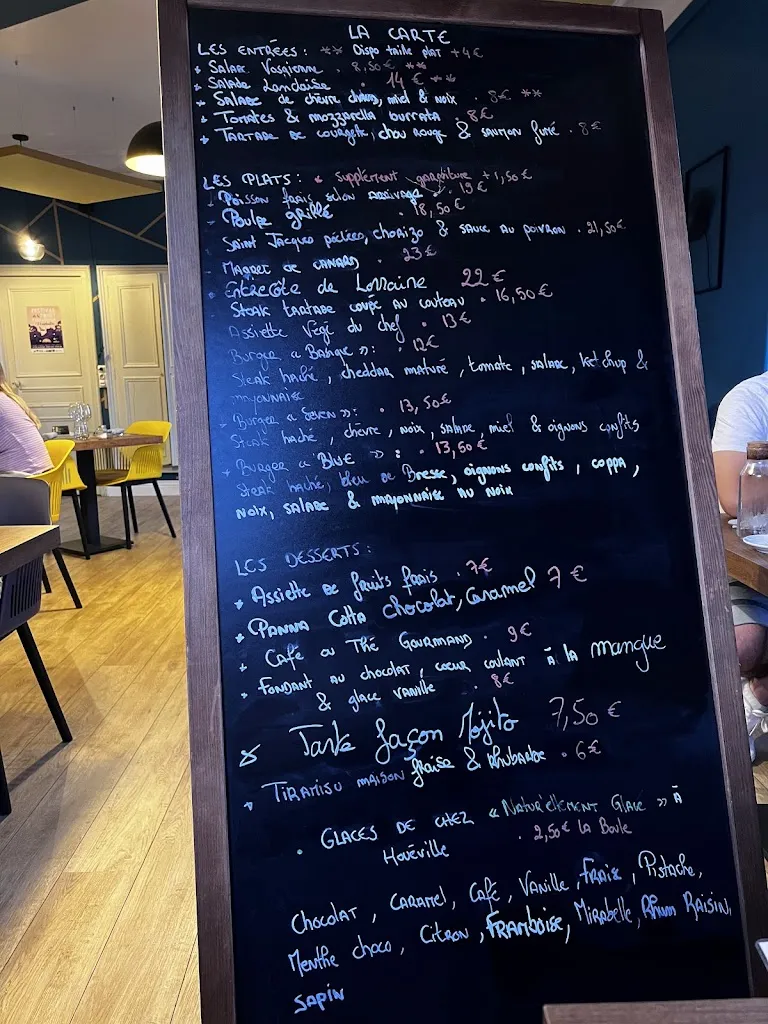 LA CARTE
LES ENTRÉES : ** Dispo taille plat + 4 €
* Salade Vosgienne . 8,50 € **
* Salade Landaise . 14 € **
* Salade de chèvre chaud, miel & noix . 8€ **
* Tomates & mozzarella burrata . 8€
* Tartare de courgette, chou rouge & saumon fumé . 8€
LES PLATS : * Supplément garniture + 1,50€
Poisson frais selon arrivage . 19€
Poulpe grillé . 18,50€
Saint Jacques poêlées, chorizo & sauce au poivron . 21,50€
Magret de canard . 23€
Entrecôte de Lorraine 22€
Steak tartare coupé au couteau . 16,50€
Assiette Végé du chef . 13€
Burger « » : . 12€
Steak haché, cheddar maturé, tomate, salade, ketchup &
mayonnaise
Burger « » : . 13,50€
Steak haché, chèvre, noix, salade, miel & oignons confits
* Burger « Blue » : . 13,50€
Steak haché, bleu de Bresse, oignons confits, coppa,
noix, salade & mayonnaise au noix
LES DESSERTS :
* Assiette de fruits frais . 7€
* Panna Cotta chocolat, Caramel 7€
* Café ou Thé Gourmand . 9€
* Fondant au chocolat, coeur coulant à la mangue
& glace vanille . 8€
* Tarte façon Mojito 7,50€
* Tiramisu maison fraise & rhubarbe . 6€
. Glaces de chez « Natur'ellement Glace » à
Houéville . 2,50€ La Boule
Chocolat, Caramel, Café, Vanille, Fraise, Pistache,
Menthe choco, Citron, Framboise, Mirabelle, Rhum Raisin,
Sapin